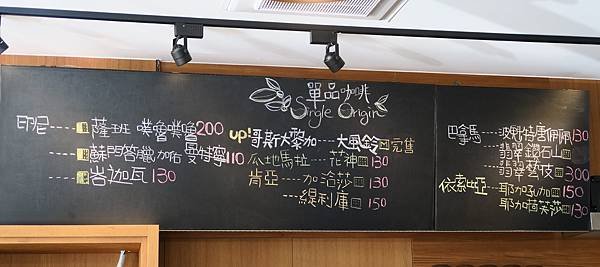 單品咖啡
Single Origin
印尼----薩班 噗嚕噗嚕200
----蘇門答臘 加佑 曼特寧110
---峇迦瓦130
up!哥斯大黎加----大風鈴 完售
瓜地馬拉--花神130
肯亞---加洽莎130
---緹利庫150
巴拿馬---波魁特唐佩佩130
翡翠鑽石山
翡翠藝伎300
依索比亞--耶加 加150
耶加 芙莎130